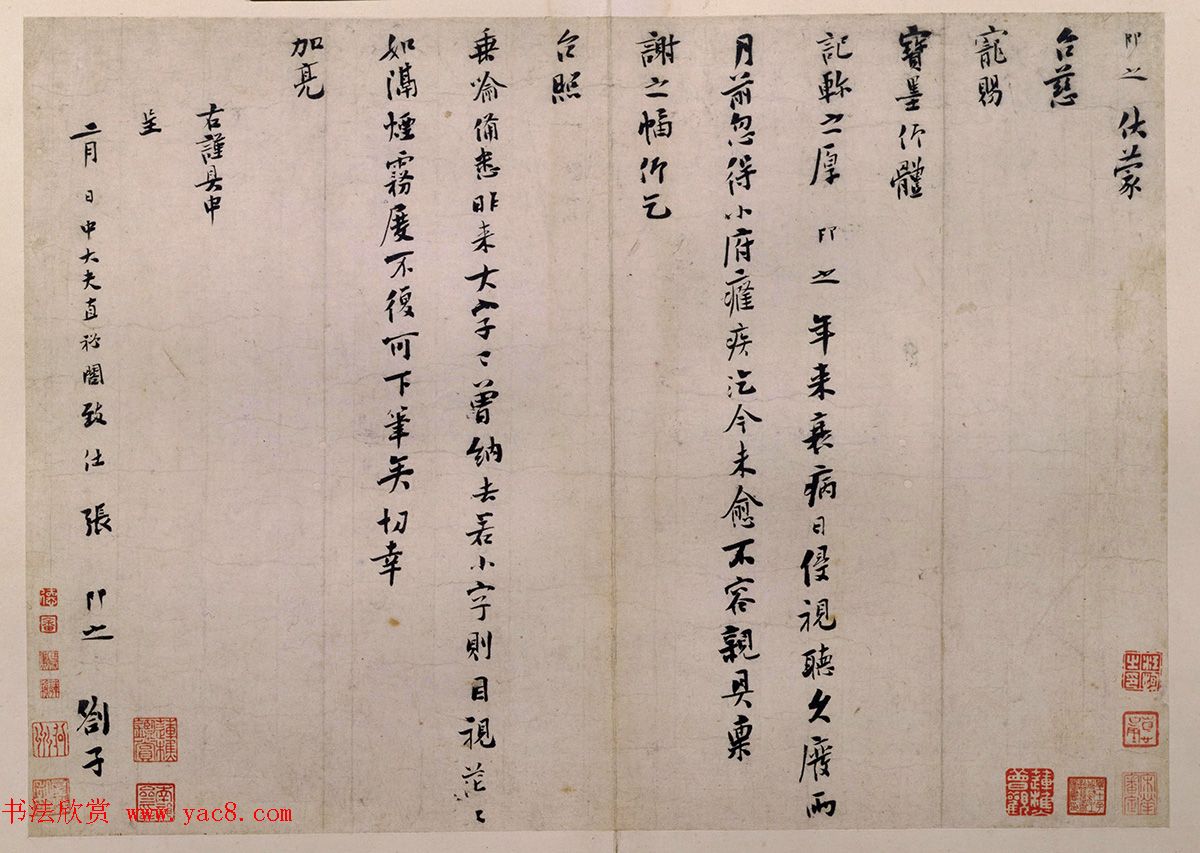 即之 伏蒙
台慈
寵賜
寶墨仰體
記軫之厚 即之 年來衰病日侵視聽久廢兩
月前忽得小府癰疾迄今未愈不容親具稟
謝之幅仰乞
台照
垂喻備悉昨來大字已曾納去若小字則目視茫々
如隔煙霧屢不復可下筆矣切幸
加亮
右謹具申
呈
二月 日中大夫直祕閣致仕 張 即之 劄子
书法欣赏 www.yac8.com